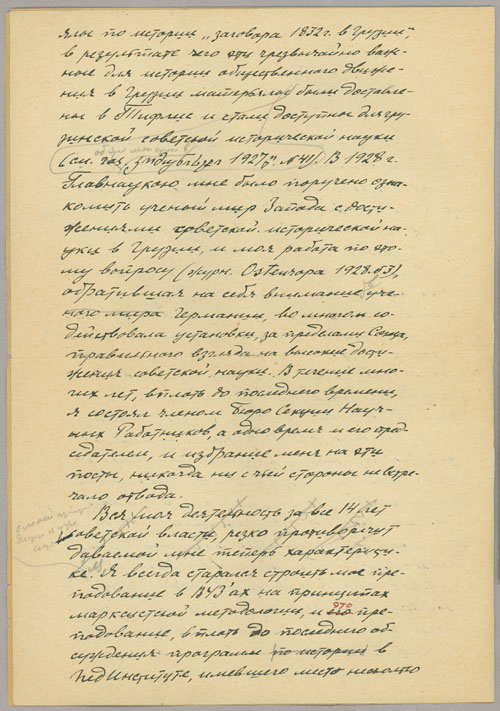 ялов по истории „заговора 1832 г. в Грузии",
в результате чего эти чрезвычайно важ-
ные для истории общественного движе-
ния в Грузии материалы были доставле-
ны в Тифлис и стали доступны для гру-
зинской советской исторической науки
(см. газ. 1927 г. № 41). В 1928 г.
Главнаукою мне было поручено озна-
комить ученый мир Запада с дости-
жениями советской исторической на-
уки в Грузии, и моя работа по это-
му вопросу (журн. Osteuropa 1928 № 3),
обратившая на себя внимание уче-
ного мира Германии, во многом со-
действовала установки, за пределами Союза,
правильного взгляда на высокие дости-
жения советской науки. В течение мно-
гих лет, вплоть до последнего времени,
я состоял членом Бюро Секции Науч-
ных Работников, а одно время и его пред-
седателем, и избрание меня на эти
посты, никогда ни с чьей стороны не встре-
чало отвода.
Вся моя деятельность за все 14 лет
советской власти, резко противоречит
даваемой мне теперь характеристи-
ке. Я всегда старался строить мое пре-
подование в ВУЗ'ах на принципах
марксистской методологии, и это пре-
подование, вплоть до последнего об-
суждения программ по истории в
ПедИнституте, имевшего место несколько